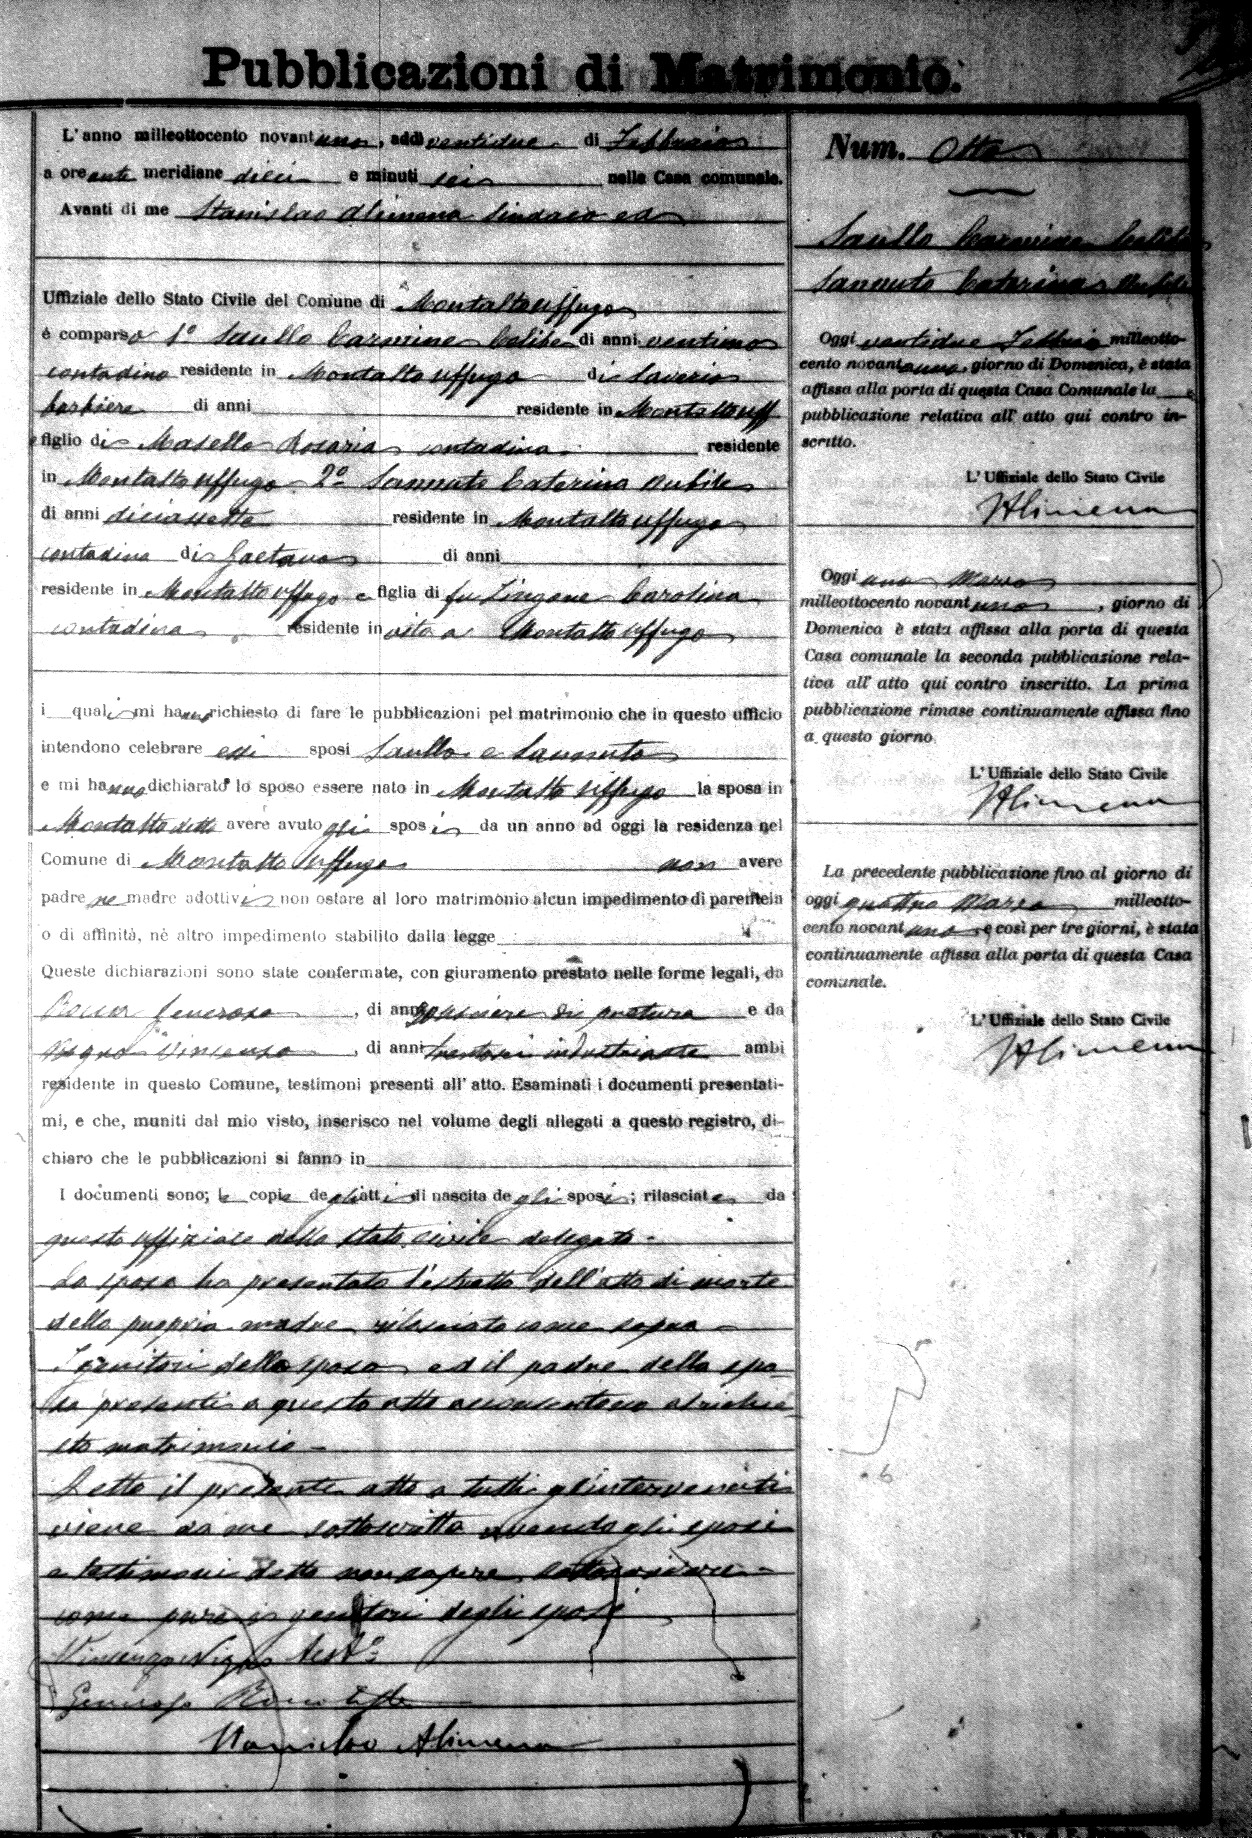 Pubblicazioni di Matrimonio.
L'anno milleottocento novantuno, addì ventidue di Febbraio
a ore ante meridiane dieci e minuti sei nella Casa comunale.
Avanti di me Stanislao Alimena Sindaco ed
Uffiziale dello Stato Civile del Comune di Montalto Uffugo
è comparso 1º Saullo Carmine Celibe di anni ventuno
contadino residente in Montalto Uffugo di Saverio
barbiere di anni residente in Montalto Uff
figlio di Masella Rosaria contadina residente
in Montalto Uffugo 2º Sannuto Caterina Nubile
di anni diciassette residente in Montalto Uffugo
contadina di Gaetano di anni
residente in Montalto Uffugo e figlia di fu Carolina
contadina residente in vita a Montalto Uffugo
i quali mi hanno richiesto di fare le pubblicazioni pel matrimonio che in questo ufficio
intendono celebrare essi sposi Saullo e Sannuto
e mi hanno dichiarato lo sposo essere nato in Montalto Uffugo la sposa in
Montalto detto avere avuto gli sposi da un anno ad oggi la residenza nel
Comune di Montalto Uffugo non avere
padre ne madre adottivi non ostare al loro matrimonio alcun impedimento di parentela
o di affinità, nè altro impedimento stabilito dalla legge
Queste dichiarazioni sono state confermate, con giuramento prestato nelle forme legali, da
Generoso, di anni usciere di pretura e da
Nigro Vincenzo, di anni industriante ambi
residente in questo Comune, testimoni presenti all'atto. Esaminati i documenti presentati-
mi, e che, muniti dal mio visto, inserisco nel volume degli allegati a questo registro, di-
chiaro che le pubblicazioni si fanno in
I documenti sono; le copie degli atti di nascita degli sposi; rilasciate da
questo uffiziale dello stato civile delegato -
La sposa ha presentato l'estratto dell'atto di morte
della propria madre, rilasciato come sopra -
I genitori dello sposo ed il padre della spo-
sa presenti a questo atto acconsentono al richie-
sto matrimonio -
Letto il presente atto a tutti gl'intervenuti
viene da me sottoscritto avendo gli sposi
e testimoni detto non sapere sottoscrivere -
come pure i genitori degli sposi
Vincenzo Nigro testº
Generoso
Stanislao Alimena
Num. Otto
Saullo Carmine Celibe
Sannuto Caterina Nubile
Oggi ventidue Febbraio milleotto-
cento novantuno, giorno di Domenica, è stata
affissa alla porta di questa Casa Comunale la
pubblicazione relativa all'atto qui contro in-
scritto.
L'Uffiziale dello Stato Civile
SAlimena
Oggi uno Marzo
milleottocento novantuno, giorno di
Domenica è stata affissa alla porta di questa
Casa comunale la seconda pubblicazione rela-
tiva all'atto qui contro inscritto. La prima
pubblicazione rimase continuamente affissa fino
a questo giorno
L'Uffiziale dello Stato Civile
SAlimena
La precedente pubblicazione fino al giorno di
oggi quattro Marzo milleotto-
cento novantuno e così per tre giorni, è stata
continuamente affissa alla porta di questa Casa
comunale.
L'Uffiziale dello Stato Civile
SAlimena